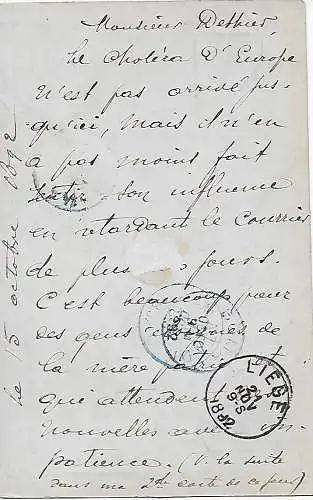 Monsieur Dethier,
le choléra d'Europe
n'est pas arrivé jus-
qu'ici, mais il n'en
a pas moins fait
sentir son influence
en retardant le courrier
de plus jours.
C'est beaucoup pour
des gens
de la mère
qui attendent
nouvelles avec im-
patience. (V. la suite
dans ma 2de carte de ce jour)
le 15 octobre 1892
LIEGE
21
NOV
9-S
1892